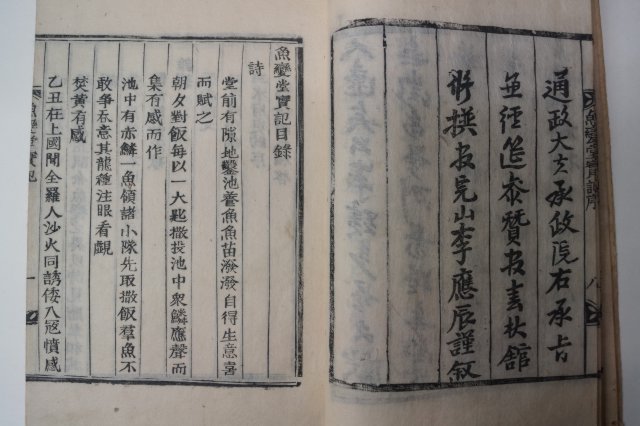 通政大夫承政院右承旨
兼經筵參贊官春秋館
修撰官完山李應辰謹敘
魚變堂實記目錄
詩
堂前有隙地鑿池養魚魚苗潑潑自得生意喜
而賦之
朝夕對飯每以一大匙撒投池中衆鱗應聲而
集有感而作
池中有赤鱗一魚領諸小隊先取撒飯羣魚不
敢爭吞意其龍種注眼看覷
焚黃有感
乙丑在上國聞全羅人沙火同誘倭入寇憤感
魚變堂實記
一